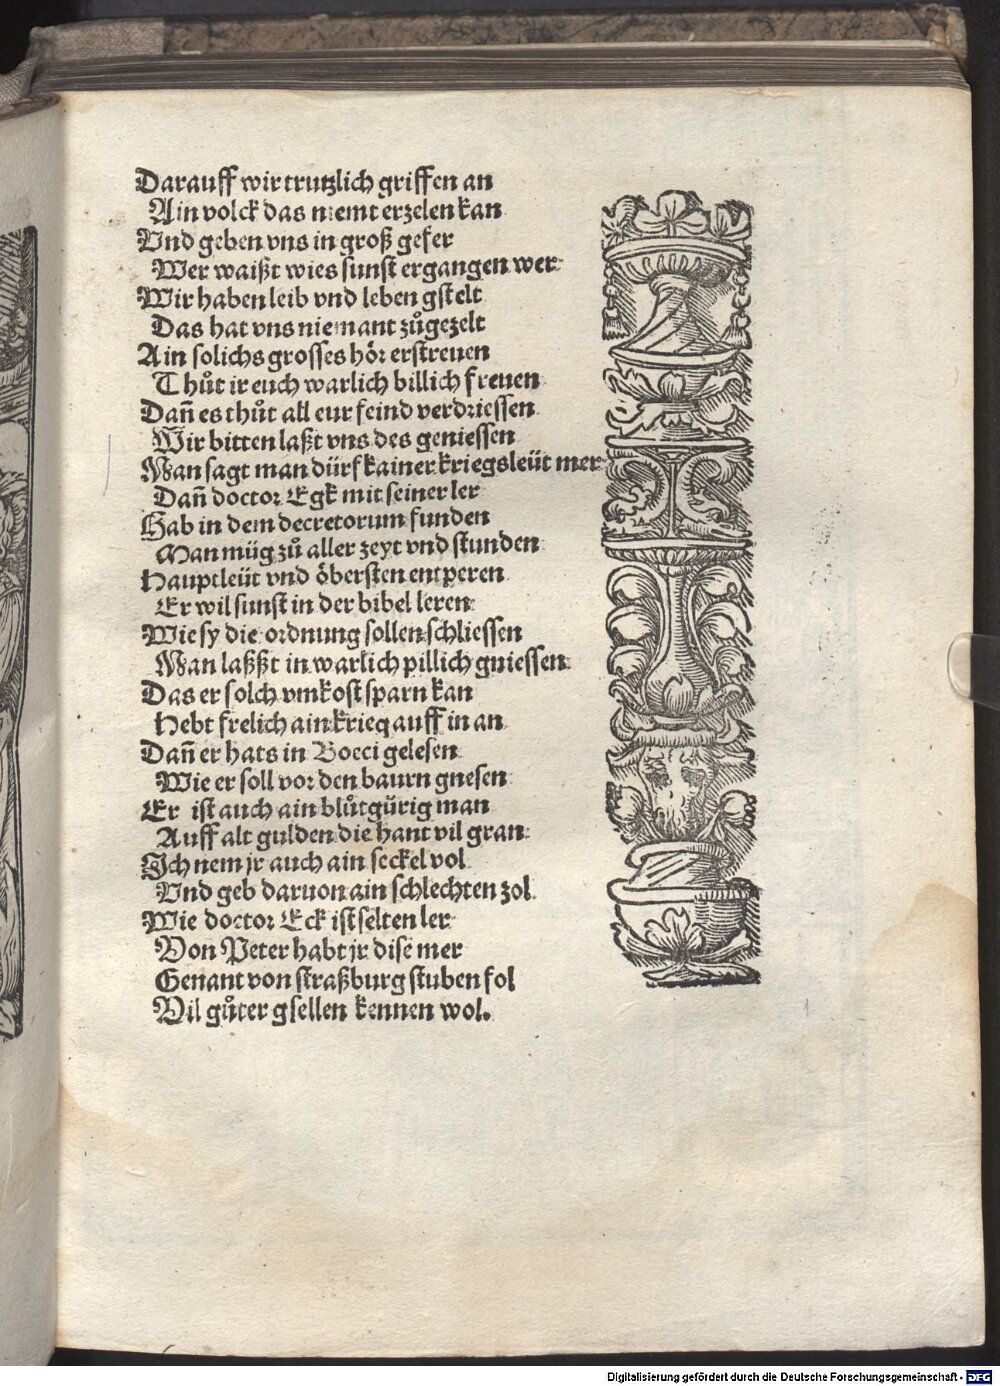 Darauff wir trutzlich griffen an
Ain volck das niemt erzelen kan
Vnd geben vns in groß gefer
Wer waißt wies sunst ergangen wer
Wir haben leib vnd leben gstelt
Das hat vns niemant zůgezelt
Ain solichs grosses hör erstreuen
Thůt ir euch warlich billich freuen
Dañ es thůt all eur feind verdriessen
Wir bitten laßt vns des geniessen
Man sagt man dürf kainer kriegsleüt mer
Dañ doctor Egk mit seiner ler
Hab in dem decretorum funden
Man müg zů aller zeyt vnd stunden
Hauptleüt vnd öbersten entperen
Er wil sunst in der bibel leren
Wie sy die ordnung sollen schliessen
Man laßßt in warlich pillich gniessen
Das er solch vnkost sparn kan
Hebt frelich ain krieg auff in an
Dañ er hats in Boeci gelesen
Wie er soll vor den baurn gnesen
Er ist auch ain blůtgůrig man
Auff alt gulden die hant vil gran
Ich nem jr auch ain seckel vol
Vnd geb daruon ain schlechten zol
Wie doctor Eck ist selten ler
Von Peter habt jr dise mer
Genant von straßburg stuben fol
Vil gůter gsellen kennen wol.
Digitalisierung gefördert durch die Deutsche Forschungsgemeinschaft - DFG